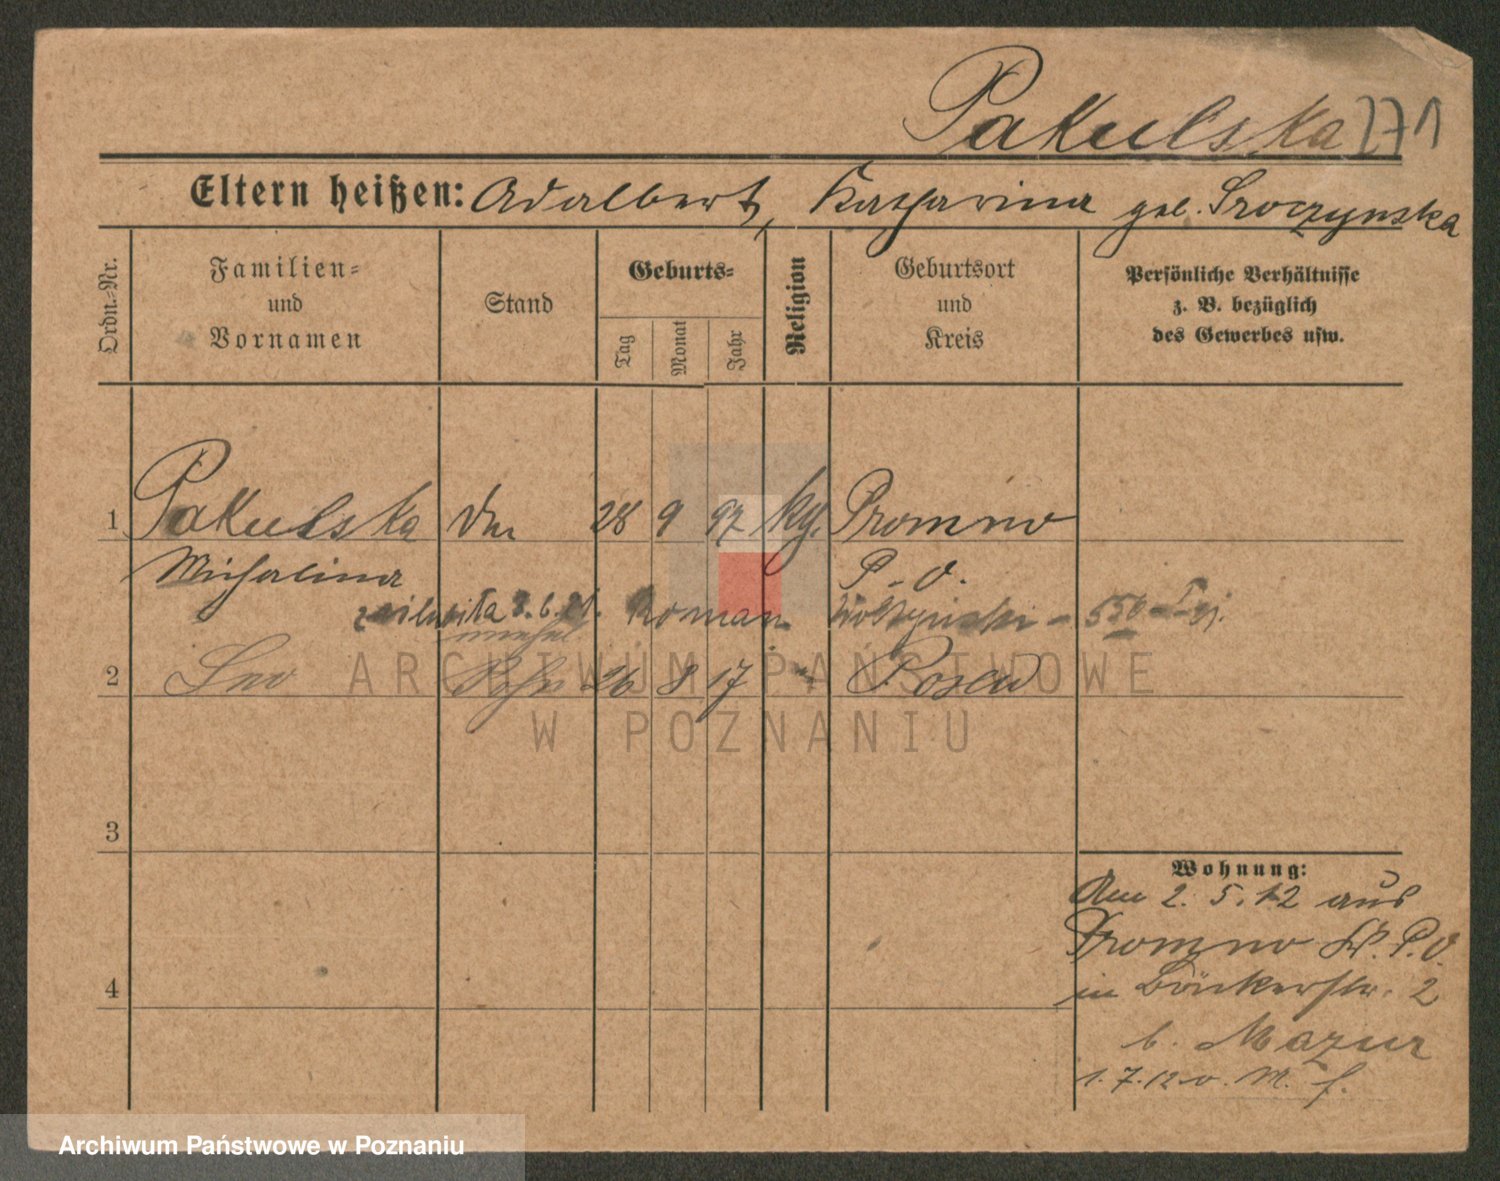 Pakulska 271
Eltern heißen: Adalbert, Katharina geb. Sroczynska
Ordn.-Nr.
Familien- und Vornamen
Stand
Geburts-
Tag
Monat
Jahr
Religion
Geburtsort und Kreis
Persönliche Verhältnisse z. B. bezüglich des Gewerbes usw.
1 Pakulska 28 9 97 Promno
Michalina P-O.
3.6.21. Roman 550
2 Leo Sohn 26 8 17 Posen
3
4
Wohnung:
Am 2. 5. 12 aus
Promno Kr. P.O.
in Bäckerstr. 2
b. Mazur
1.7.12 v. M. f.
ARCHIWUM PAŃSTWOWE
W POZNANIU
Archiwum Państwowe w Poznaniu